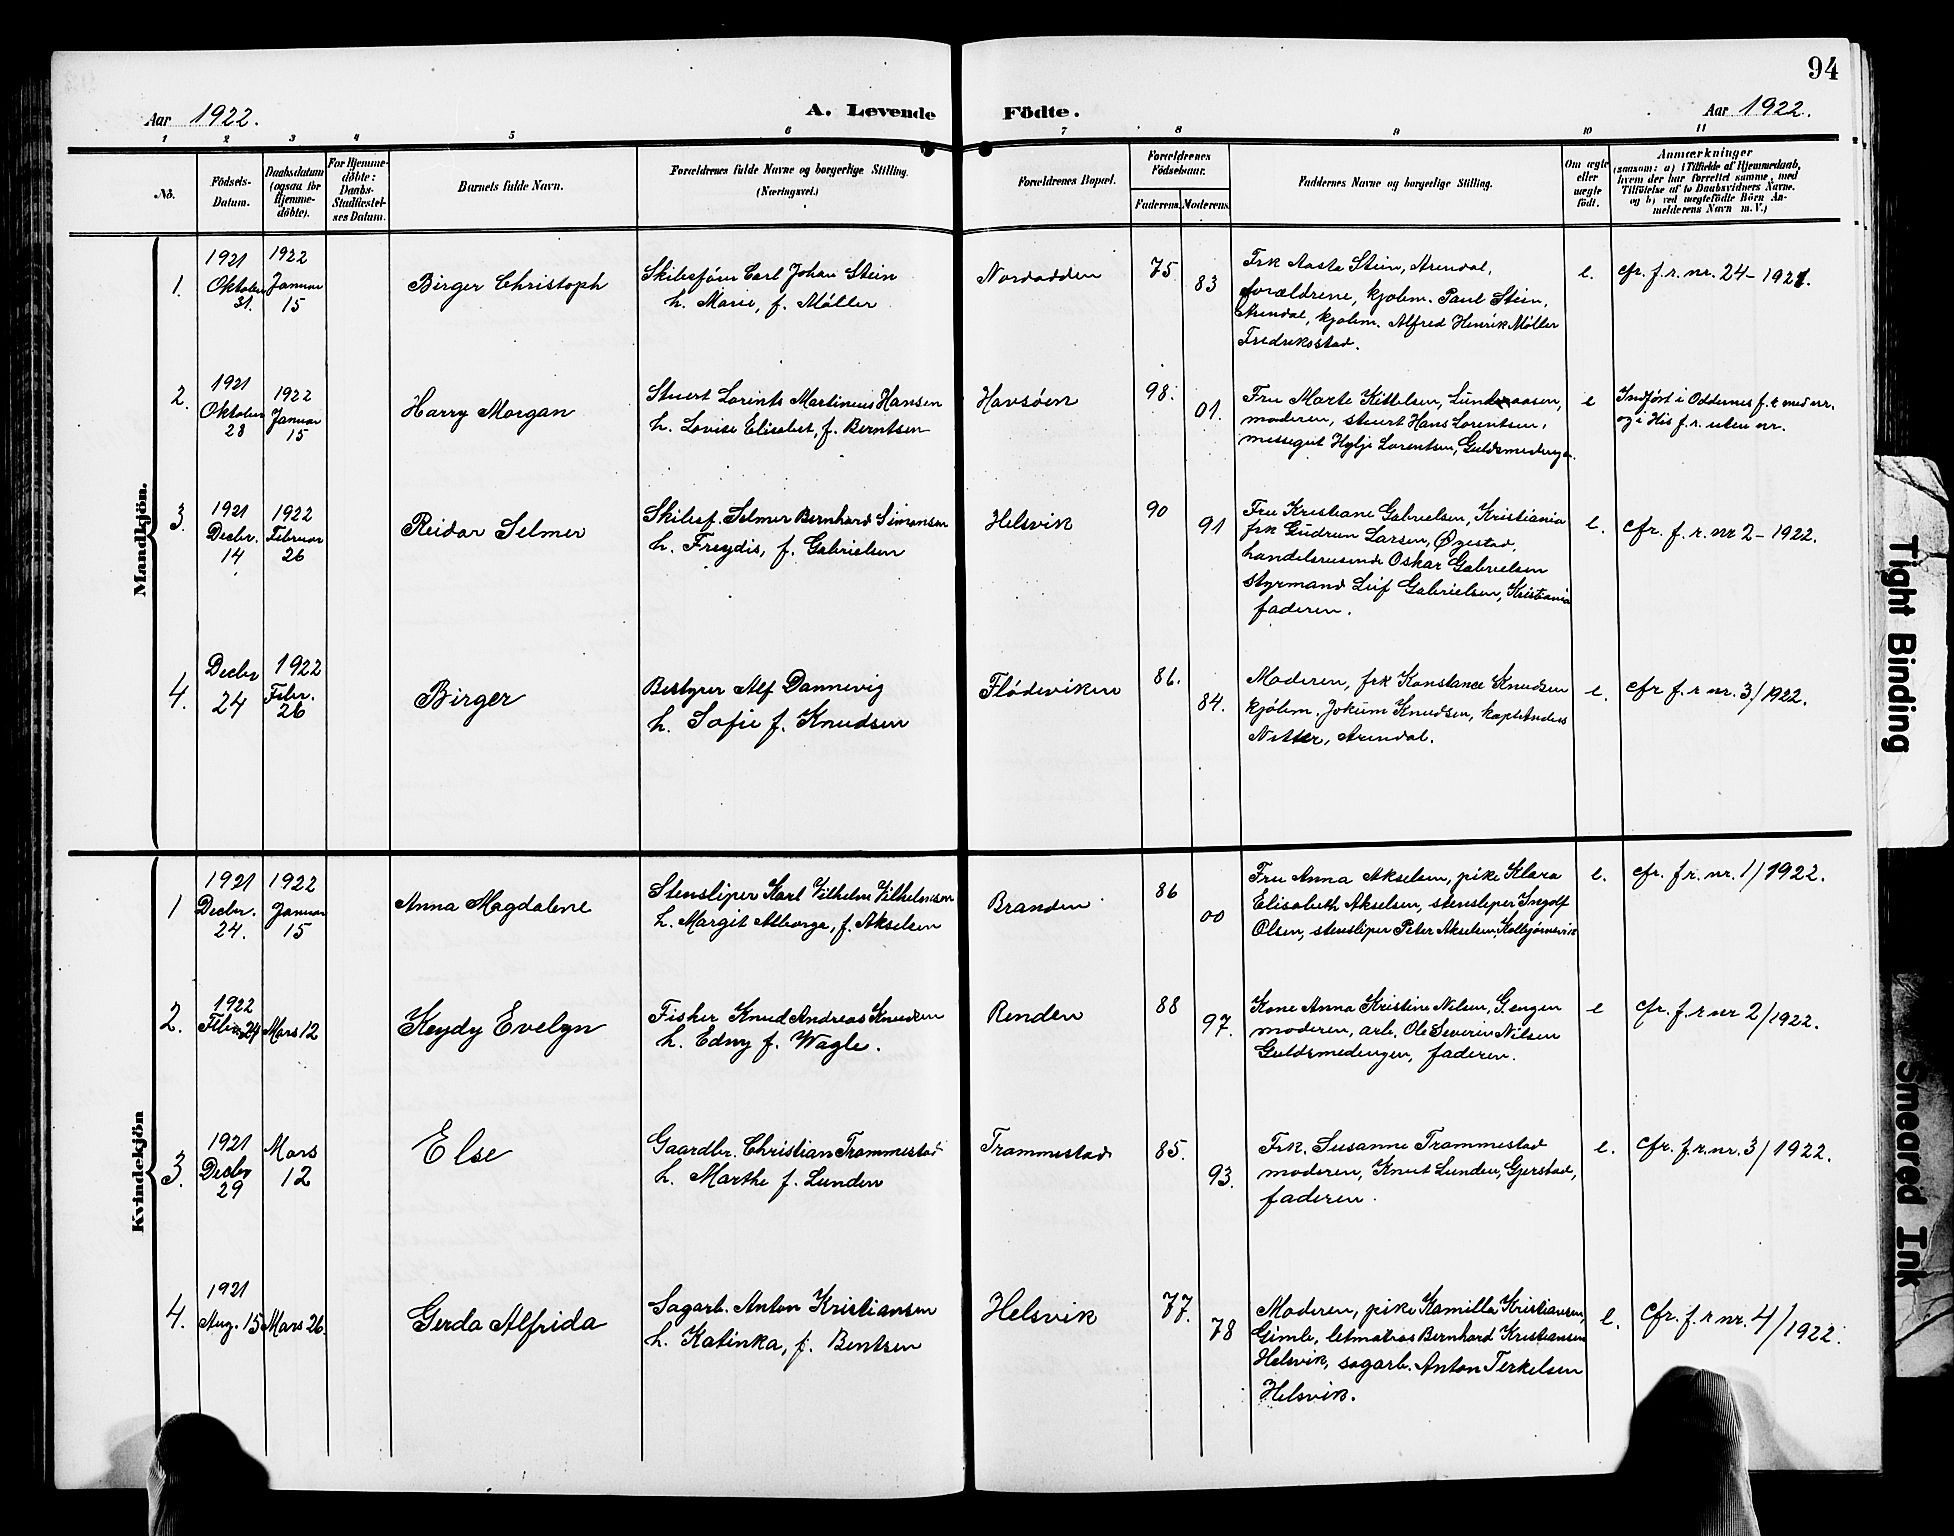 94
Aar 1922.
A. Levende Födte.
Aar 1922.
1 2 3 4 5 6 7 8 9 10 11
No.
Födsels-
Datum.
Daabsdatum
(ogsaa for
Hjemme-
döbte).
For Hjemme-
döbte:
Daabs-
Stadfæstel-
ses Datum.
Barnets fulde Navn.
Forældrenes fulde Navne og borgerlige Stilling.
(Næringsvei.)
Forældrenes Bopæl.
Forældrenes
Födselsaar.
Faderens. Moderens.
Faddernes Navne og borgerlige Stilling.
Om ægte
eller
uægte
födt.
Anmærkninger
(saasom: a) i Tilfælde af Hjemmedaab,
hvem der har forrettet samme, med
Tilföielse af to Daabsvidners Navne.
og b) ved uægtefödte Börn An-
melderens Navn m. V.)
Mandkjön.
1.
1921
Oktober
31.
1922
Januar
15
Birger Christoph
Skibsfører Carl Johan Stein
h. Marie, f. Møller
Nordodden
75
83
Frk Aasta Stein, Arendal,
forældrene, kjøbm. Paul Stein,
Arendal, kjøbm. Alfred Henrik Møller
Fredriksstad.
e.
cfr. f. r. nr. 24-1921.
2.
1921
Oktober
28
1922
Januar
15
Harry Morgan
Stuert Lorents Martinius Hansen
h. Lovise Elisabet, f. Berntsen
Havsøen
98.
01.
Fru Marte Kittelsen, Lundeaasen,
moderen, stuert Hans Lorentsen,
messegut Hylje Lorentsen, Guldsmedeng.
e
Indført i Oddernes f. r med nr.
og i His f. r. uten nr.
3.
1921
Decbr.
14
1922
Februar
26
Reidar Selmer
Skibsf. Selmer Bernhard Simonsen
h. Freydis, f. Gabrielsen
Helsvik
90
91
Fru Kristiane Gabrielsen, Kristiania
frk Gudrun Larsen, Øyestad,
handelsreisende Oskar Gabrielsen
styrmand Leif Gabrielsen, Kristiania
faderen.
e.
cfr. f. r. nr 2-1922.
4.
Decbr
24
1922
Febr.
26
Birger
Bestyrer Alf Dannevig
h. Sofie f. Knudsen
Flødeviken
86.
84.
Moderen, frk Konstance Knudsen
kjøbm. Jokum Knudsen, kapt Anders
Nitter, Arendal.
e.
cfr f. r nr. 3/1922.
Kvindekjön
1
1921
Decbr.
24.
1922
Januar
15
Anna Magdalene
Stensliper Karl Vilhelm Vilhelmsen
h. Margit Alborga, f. Akselsen
Branden
86
00
Fru Anna Akselsen, pike Klara
Elisabeth Akselsen, stensliper Ingolf
Olsen, stensliper Peter Akselsen, Kolbjørnsvik
e.
cfr. f r. nr. 1/1922.
2.
1922
Febr. 24
Mars 12
Keydy Evelyn
Fisker Knud Andreas Knudsen
h. Edny f. Wagle.
Renden
88
97.
Kone Anna Kristine Nilsen, G.engen
moderen, arb. Ole Severin Nilsen
Guldsmedengen, faderen.
e
cfr. f. r nr 2/1922.
3.
1921
Decbr
29
Mars
12
Else
Gaardbr. Christian Trommestad
h. Marthe f. Lunden
Trommestad
85.
93.
Frk. Susanne Trommestad
moderen, Knut Lunden, Gjerstad,
faderen.
e.
cfr. f. r. nr. 3/1922.
4.
1921
Aug. 15
Mars 26.
Gerda Alfrida
Sagarb. Anton Kristiansen
h. Katinka, f. Bentsen
Helsvik
77.
78
Moderen, pike Kamilla Kristiansen,
Gimle, letmatros Bernhard Kristiansen
Helsvik, sagarb. Anton Terkelsen
Helsvik.
e.
cfr. f. r nr. 4/1922.
Tight Binding
Smeared Ink